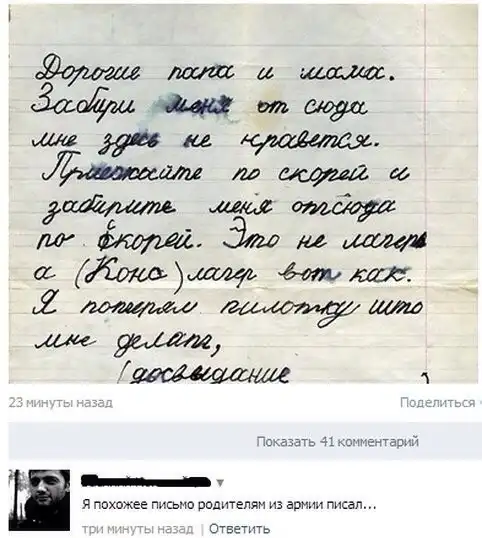 Дорогие папа и мама.
Забири меня от сюда
мне здесь не нравется.
Приезжайте по скорей и
забирите меня отсюда
по скорей. Это не лагерь
а (Конс) лагер вот как.
Я потерял пилотку што
мне делать,
(досвидание )
23 минуты назад
Поделиться
Показать 41 комментарий
Я похожее письмо родителям из армии писал...
три минуты назад | Ответить